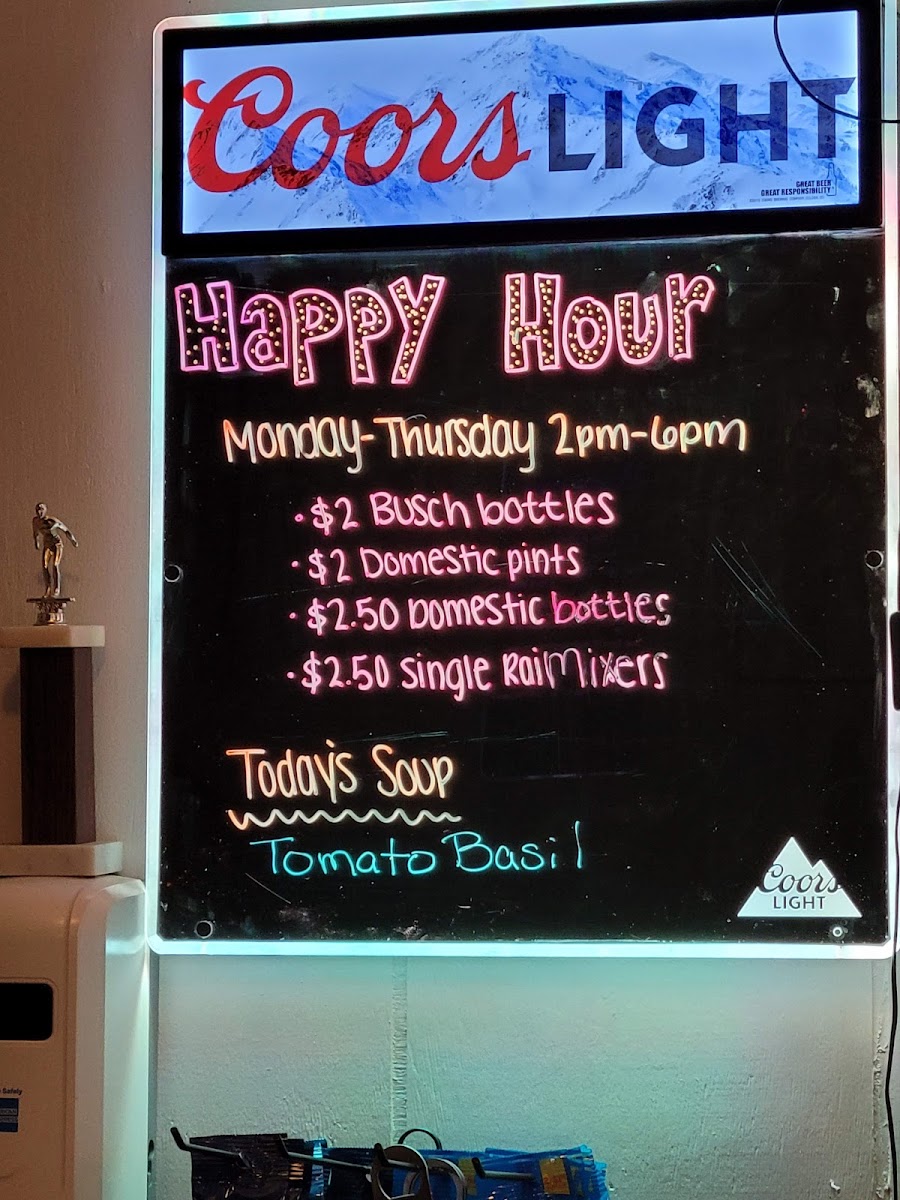 Coors LIGHT
GREAT BEER
GREAT RESPONSIBILITY
Happy Hour
Monday-Thursday 2pm-6pm
·$2 Busch bottles
·$2 Domestic pints
·$2.50 Domestic bottles
·$2.50 Single Rail Mixers
Today's Soup
Tomato Basil
Coors
LIGHT
Safety